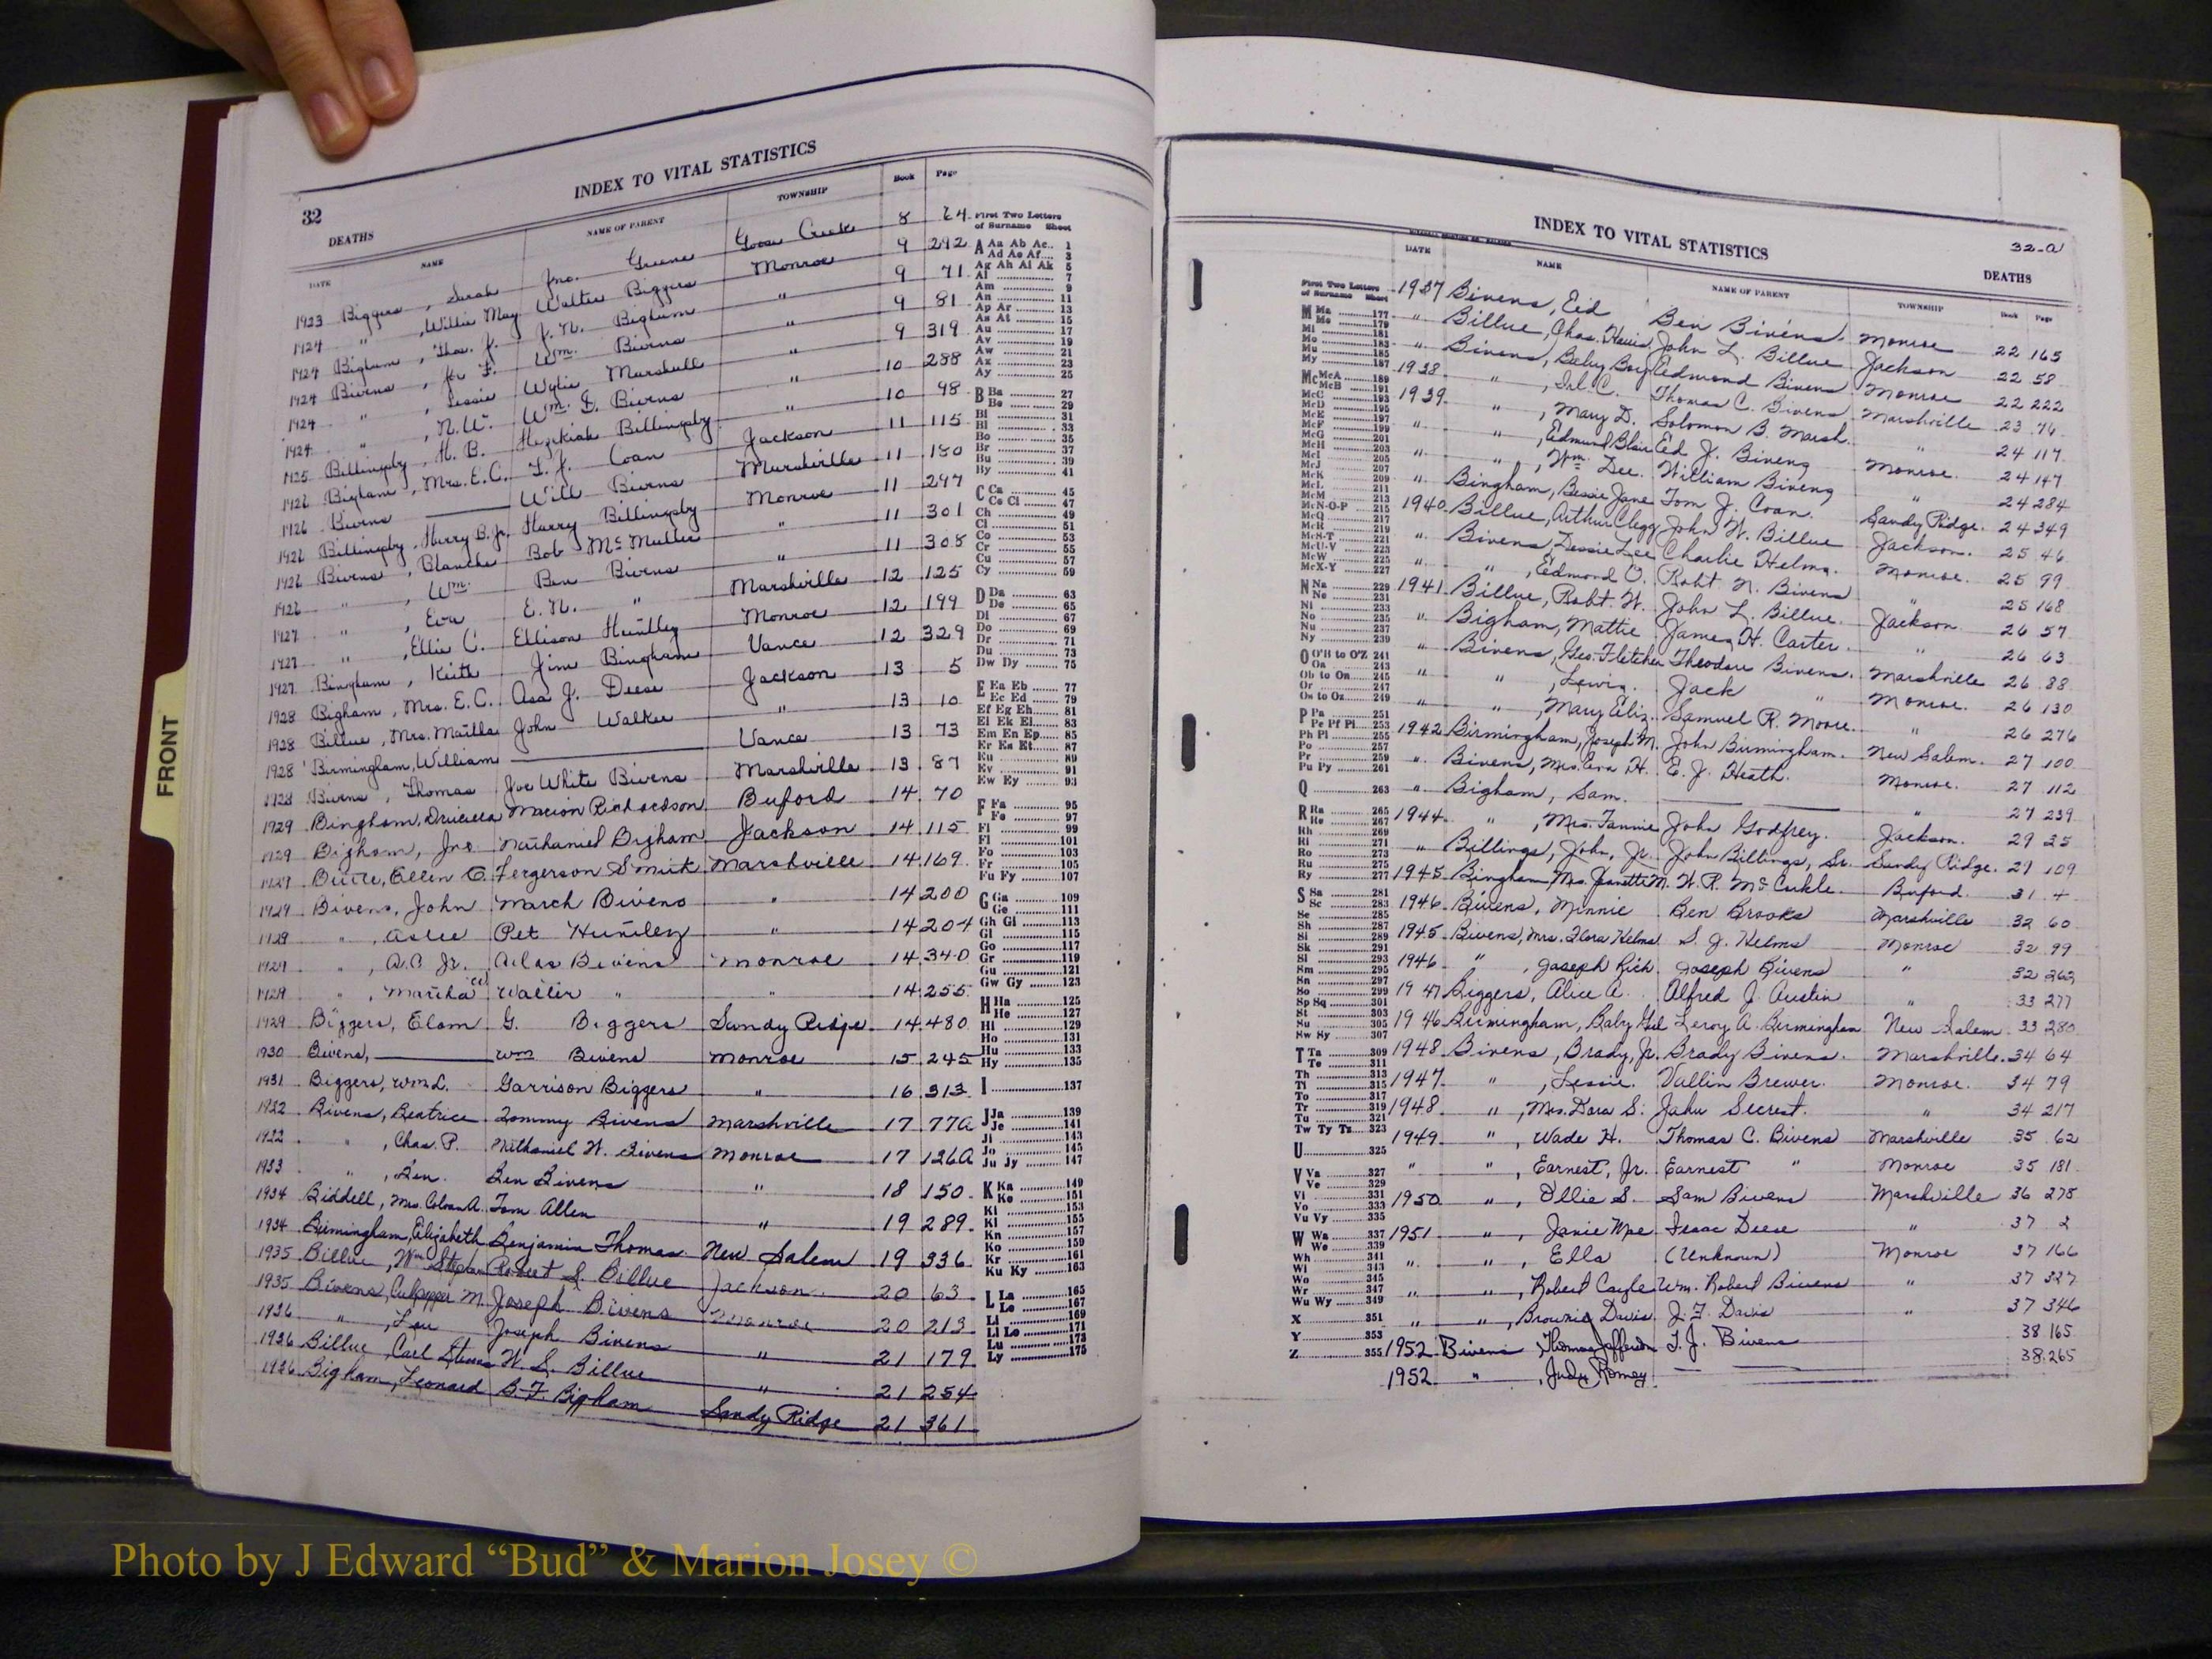 INDEX TO VITAL STATISTICS
32
DEATHS
DATE NAME NAME OF PARENT TOWNSHIP Book Page
1923 Biggers, Sarah Jno. Greene Goose Creek 8 64
1924 " , Willie May Walter Biggers Monroe 9 292
1924 Bigham, Thos. J. J. N. Bigham " 9 71
1924 Bivens, Wm. Bivens " 9 81
1924 " , Lessie Wylie Marshall " 9 319
1924 " , N.W. Wm. D. Bivens " 10 288
1925 Billingsby, H. B. Hezekiah Billingsby " 10 98
1926 Bigham, Mrs. E.C. T. J. Coan Jackson 11 115
1926 Bivens Will Bivens Marshville 11 180
1926 Billingsby, Harry B. Jr. Harry Billingsby Monroe 11 297
1926 Bivens, Blanche Bob McMullin " 11 301
1926 " , Wm. Ben Bivens " 11 308
1927 " , Eva E. N. " Marshville 12 125
1927 " , Ellie C. Ellison Huntley Monroe 12 199
1927 Bingham, Keith Jim Bingham Vance 12 329
1928 Bigham, Mrs. E.C. Asa J. Deese Jackson 13 5
1928 Billue, Mrs. John Walker " 13 10
1928 Birmingham, William Vance 13 73
1928 Bivens, Thomas Joe White Bivens Marshville 13 87
1929 Bingham, Drucilla Marion Richardson Buford 14 70
1929 Bigham, Jno Nathaniel Bigham Jackson 14 115
1929 Ellen C. Fergerson Smith Marshville 14 169
1929 Bivens, John March Bivens " 14 200
1929 " , Pet Huntley " 14 204
1929 " , A.A. Jr. Bivens Monroe 14 340
1929 " , Martha Walter " " 14 255
1929 Biggers, Elam G. Biggers Sandy Ridge 14 480
1930 Bivens, Wm Bivens Monroe 15 245
1931 Biggers, Wm L. Garrison Biggers " 16 313
1932 Bivens, Beatrice Tommy Bivens Marshville 17 77A
1932 " , Chas. P. Nathaniel W. Bivens Monroe 17 126A
1933 " , Ben. Ben Bivens " 18 150
1934 Biddell, Mrs. A. Tom Allen " 19 289
1934 Birmingham, Elizabeth Benjamin Thomas New Salem 19 336
1935 Billue, Wm Stephen Robert S. Billue Jackson 20 63
1935 Bivens, Culpepper M. Joseph Bivens Monroe 20 213
1936 " , Lou Joseph Bivens " 21 179
1936 Billue, Carl W. S. Billue " 21 254
1936 Bigham, Leonard B. F. Bigham Sandy Ridge 21 361
First Two Letters of Surname Sheet
A Aa Ab Ac.. 1
Ad Ae Af.... 3
Ag Ah Ai Ak 5
Al 7
Am 9
An 11
Ap Ar 13
As At 15
Au 17
Av 19
Aw 21
Ax 23
Ay 25
B Ba 27
Be 29
Bi 31
Bl 33
Bo 35
Br 37
Bu 39
By 41
C Ca 45
Ce Ci 47
Ch 49
Cl 51
Co 53
Cr 55
Cu 57
Cy 59
D Da 63
De 65
Di 67
Do 69
Dr 71
Du 73
Dw Dy 75
E Ea Eb 77
Ec Ed 79
Ef Eg Eh 81
Ei Ek El 83
Em En Ep 85
Er Es Et 87
Eu 89
Ev 91
Ew Ey 93
F Fa 95
Fe 97
Fi 99
Fl 101
Fo 103
Fr 105
Fu Fy 107
G Ga 109
Ge 111
Gh Gi 113
Gl 115
Go 117
Gr 119
Gu 121
Gw Gy 123
H Ha 125
He 127
Hi 129
Ho 131
Hu 133
Hy 135
I 137
J Ja 139
Je 141
Ji 143
Jo 145
Ju Jy 147
K Ka 149
Ke 151
Ki 153
Kl 155
Kn 157
Ko 159
Kr 161
Ku Ky 163
L La 165
Le 167
Li 169
Ll Lo 171
Lu 173
Ly 175
FRONT
INDEX TO VITAL STATISTICS
32-a
DEATHS
DATE NAME NAME OF PARENT TOWNSHIP Book Page
1937 Bivens, Eid Ben Bivens. Monroe 22 165
" Billue, Chas. John L. Billue Jackson 22 58
" Bivens, Baby Boy Edmond Bivens Monroe 22 222
1938 " , Irl C. Thomas C. Bivens Marshville 23 76
1939 " , Mary D. Solomon B. Marsh. " 24 117
" " , Edmund Blair Ed J. Bivens Monroe. 24 147
" " , Wm. Lee. William Bivens " 24 284
" Bingham, Bessie Jane Tom J. Coan. Sandy Ridge. 24 349
1940 Billue, Arthur Clegg John W. Billue Jackson. 25 46
" Bivens, Dessie Lee Charlie Helms. Monroe. 25 99
" " , Edmond O. Robt. N. Bivens " 25 168
1941 Billue, Robt. W. John L. Billue. Jackson. 26 57
" Bigham, Mattie James H. Carter. " 26 63
" Bivens, Geo. Fletcher Theodore Bivens. Marshville 26 88
" " , Lewis. Jack " Monroe. 26 130
" " , Mary Eliz. Samuel R. Moore. " 26 276
1942 Birmingham, Joseph M. John Birmingham. New Salem. 27 100
" Bivens, Mrs. Eva H. E. J. Heath. Monroe. 27 112
" Bigham, Sam. " 27 239
1944 " , Mrs. Fannie John Godfrey. Jackson. 29 25
" Billings, John, Jr. John Billings, Sr. Sandy Ridge. 29 109
1945 Bingham, Mrs. Janette M. W. R. McCorkle. Buford. 31 4
1946 Bivens, Minnie Ben Brooks Marshville 32 60
1945 Bivens, Mrs. Flora Helms S. J. Helms Monroe 32 99
1946 " , Joseph Rich. Joseph Bivens " 32 263
1947 Biggers, Alice A. Alfred J. Austin " 33 277
1946 Birmingham, Baby Girl Leroy A. Birmingham New Salem 33 280
1948 Bivens, Brady, Jr. Brady Bivens. Marshville. 34 64
1947 " , Lessie. Vallin Brewer. Monroe. 34 79
1948 " , Mrs. Dora S. John Secrest. " 34 217
1949 " , Wade H. Thomas C. Bivens Marshville 35 62
" " , Earnest, Jr. Earnest " Monroe 35 181
1950 " , Ollie S. Sam Bivens Marshville 36 275
1951 " , Janie Mae Isaac Deese " 37 2
" " , Ella (Unknown) Monroe 37 166
" " , Robert Cayle Wm. Robert Bivens " 37 327
" " , Brownie Davis J. F. Davis " 37 346
1952 Bivens Thomas Jefferson T. J. Bivens 38 165
1952 " , Judy 38 265
First Two Letters of Surname Sheet
M Ma 177
Me 179
Mi 181
Mo 183
Mu 185
My 187
Mc McA 189
McB 191
McC 193
McD 195
McE 197
McF 199
McG 201
McH 203
McI 205
McJ 207
McK 209
McL 211
McM 213
McN-O-P 215
McQ 217
McR 219
McS-T 221
McU-V 223
McW 225
McX-Y 227
N Na 229
Ne 231
Ni 233
No 235
Nu 237
Ny 239
O O'B to O'Z 241
Oa 243
Ob to On 245
Or 247
Os to Oz 249
P Pa 251
Pe Pf Pi 253
Ph Pl 255
Po 257
Pr 259
Pu Py 261
Q 263
R Ra 265
Re 267
Rh 269
Ri 271
Ro 273
Ru 275
Ry 277
S Sa 281
Sc 283
Se 285
Sh 287
Si 289
Sk 291
Sl 293
Sm 295
Sn 297
So 299
Sp Sq 301
St 303
Su 305
Sw Sy 307
T Ta 309
Te 311
Th 313
Ti 315
To 317
Tr 319
Tu 321
Tw Ty Tz 323
U 325
V Va 327
Ve 329
Vi 331
Vo 333
Vu Vy 335
W Wa 337
We 339
Wh 341
Wi 343
Wo 345
Wr 347
Wu Wy 349
X 351
Y 353
Z 355
Photo by J Edward “Bud” & Marion Josey ©